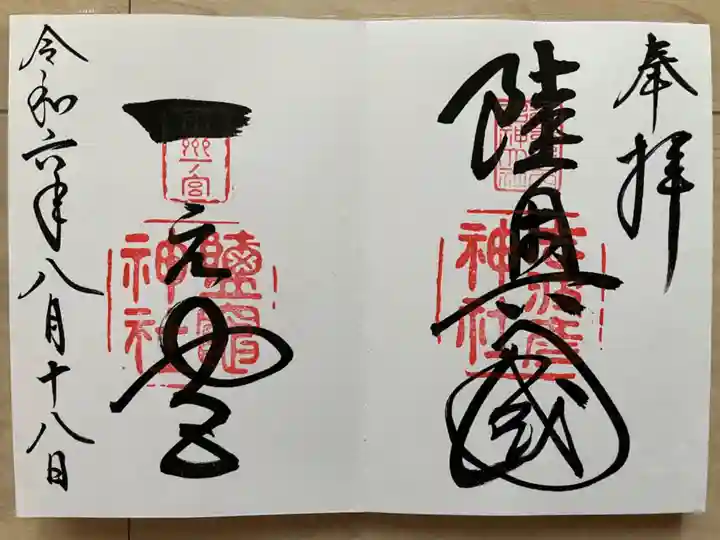 奉拝
陸奥國
志波彦
神社
一之宮
鹽竈
神社
令和六年八月十八日